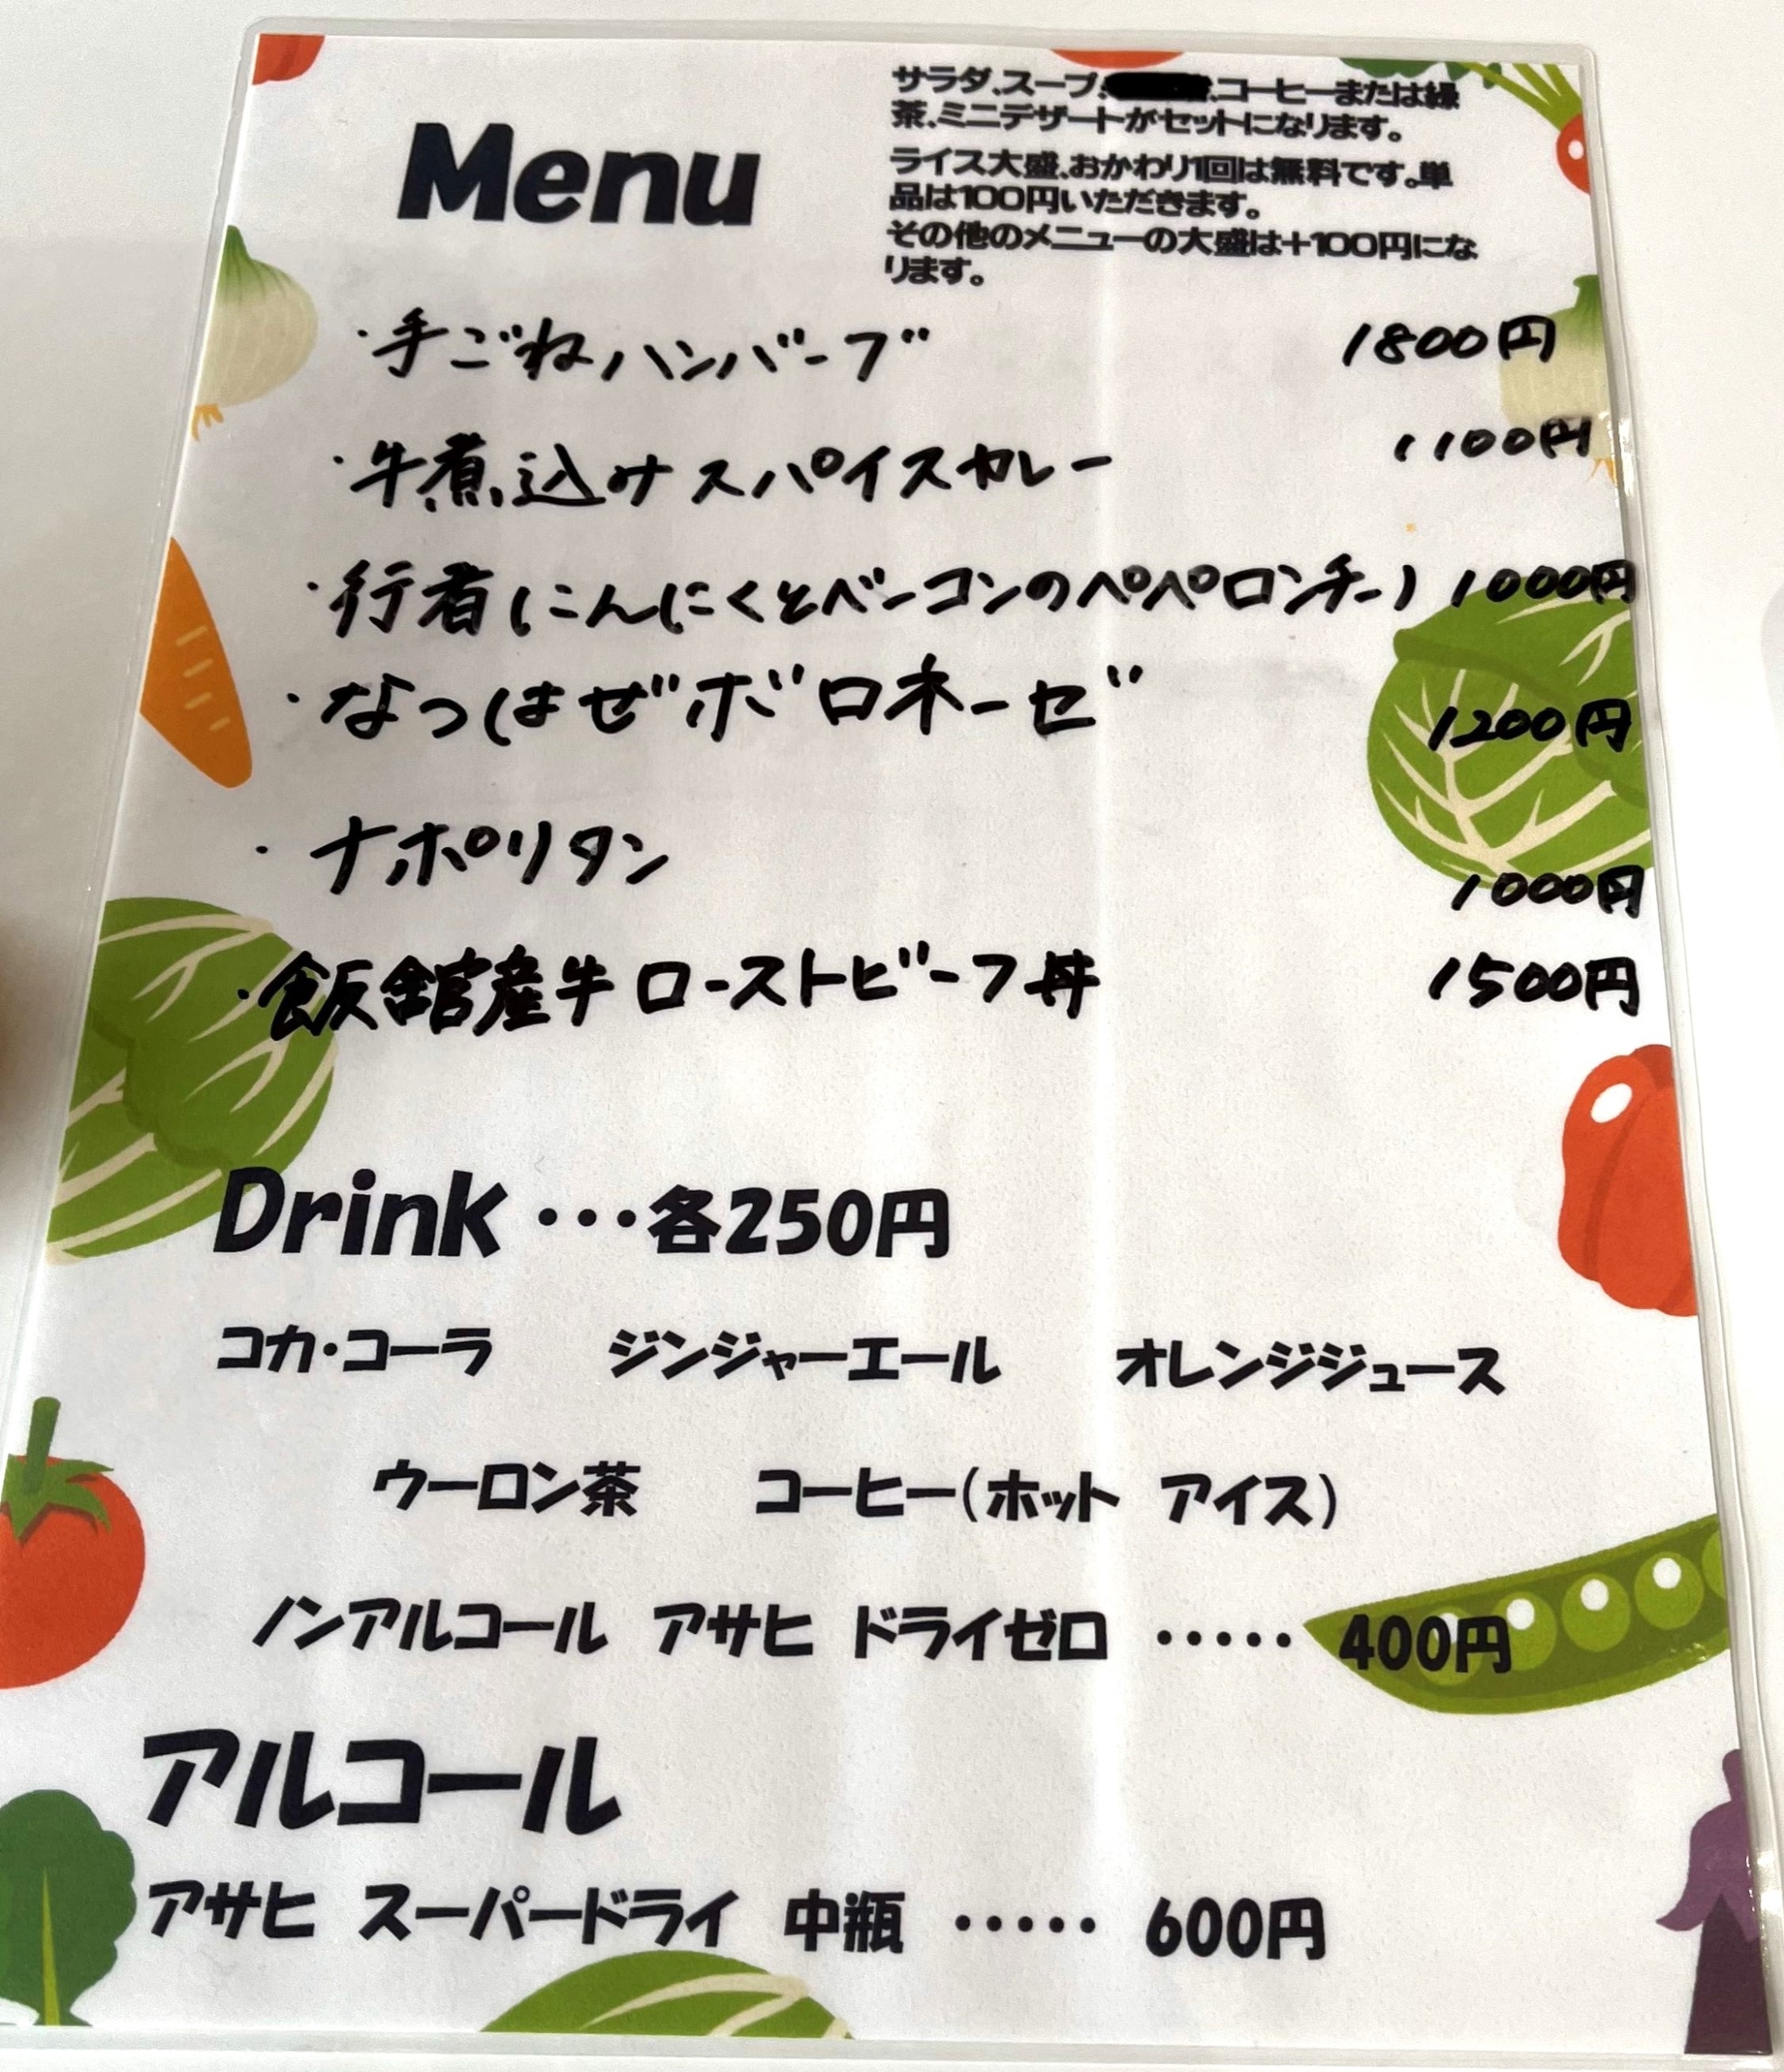 Menu
サラダ、スープ、コーヒーまたは緑
茶、ミニデザートがセットになります。
ライス大盛、おかわり1回は無料です。単
品は100円いただきます。
その他のメニューの大盛は+100円にな
ります。
・手ごねハンバーグ 1800円
・牛煮込みスパイスカレー 1100円
・行者(にんにくとベーコンのペペロンチー) 1000円
・なつはぜボロネーゼ 1200円
・ナポリタン 1000円
・飯舘産牛ローストビーフ丼 1500円
Drink ・・・各250円
コカ・コーラ ジンジャーエール オレンジジュース
ウーロン茶 コーヒー(ホット アイス)
ノンアルコール アサヒ ドライゼロ ・・・・・ 400円
アルコール
アサヒ スーパードライ 中瓶 ・・・・・ 600円